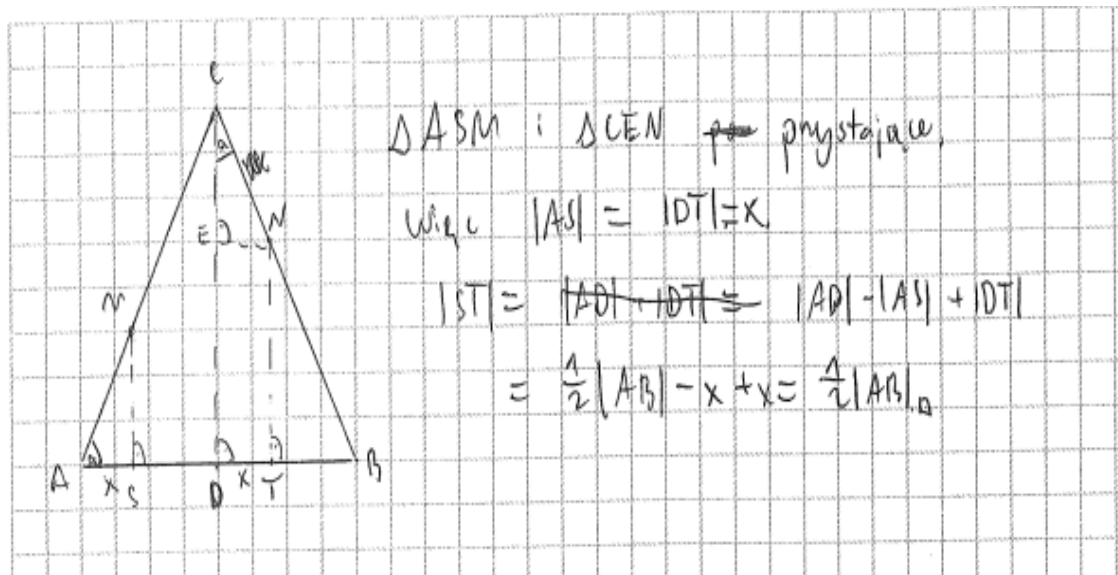 C
α
E
N
A
x
S
D
x
T
B
Δ ASM i Δ CEN przystające,
więc |AS| = |DT| = x
|ST| = |AD| - |AS| + |DT|
= 1/2 |AB| - x + x = 1/2 |AB|.□